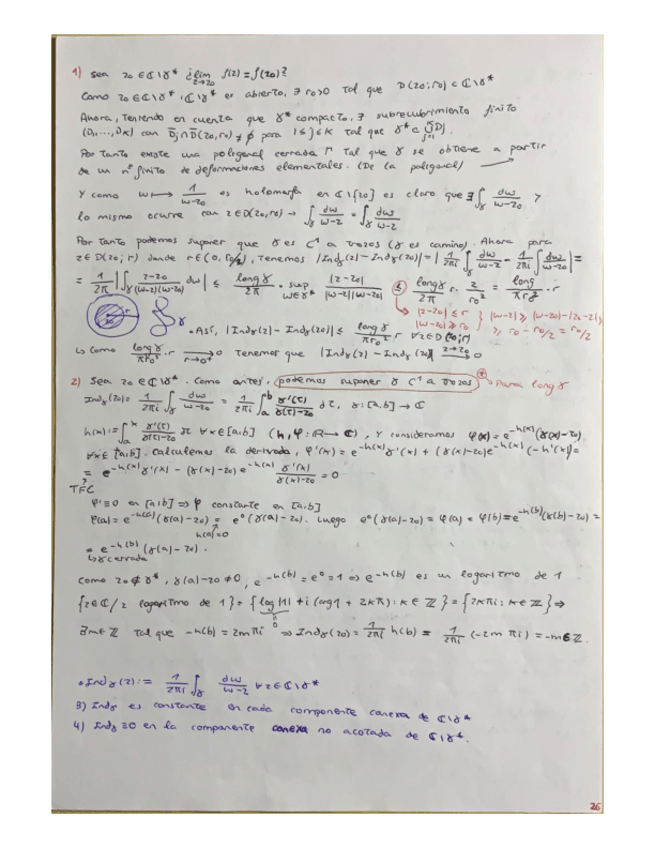 1) Sea z0 ∈ ℂ\γ* ¿lim_{z→z0} f(z) = f(z0)?
Como z0 ∈ ℂ\γ*, ℂ\γ* es abierto, ∃ r0>0 tal que D(z0;r0) ⊂ ℂ\γ*
Ahora, teniendo en cuenta que γ* compacto, ∃ subrecubrimiento finito
(D1,...,Dk) con para 1≤j≤k tal que γ* ⊂ ∪_{j=1} Dj.
Por tanto existe una poligonal cerrada Γ tal que γ se obtiene a partir
de un nº finito de deformaciones elementales. (De la poligonal)
Y como w ↦ 1/(w-z0) es holomorfa en ℂ\{z0} es claro que ∃ ∫_γ dw/(w-z0) y
lo mismo ocurre con z ∈ D(z0,r0) → ∫_γ dw/(w-z) = ∫_γ dw/(w-z)
Por tanto podemos suponer que γ es C¹ a trozos (γ es camino). Ahora para
z ∈ D(z0;r) donde r ∈ (0, r0/2), tenemos |Indγ(z) - Indγ(z0)| = |1/2πi ∫_γ dw/(w-z) - 1/2πi ∫_γ dw/(w-z0)| =
= 1/2π |∫_γ (z-z0)/((w-z)(w-z0)) dw| ≤ long γ/2π · sup_{w∈γ*} |z-z0|/(|w-z||w-z0|) ≤ long γ/2π r · 2/r0² = long γ/πr0² · r
|z-z0| ≤ r
|w-z0| ≥ r0
|w-z| ≥ |w-z0| - |z0-z| ≥
≥ r0 - r0/2 = r0/2
r
γ
• Así, |Indγ(z) - Indγ(z0)| ≤ long γ/πr0² r ∀z ∈ D(z0;r)
↳ Como long γ/πr0² · r → 0 r→0⁺ tenemos que |Indγ(z) - Indγ(z0)| → 0 z→z0
2) Sea z0 ∈ ℂ\γ*. Como antes, podemos suponer γ C¹ a trozos (*) → Para long γ
Indγ(z0) = 1/2πi ∫_γ dw/(w-z0) = 1/2πi ∫_a^b γ'(t)/(γ(t)-z0) dt, γ:[a;b] → ℂ
h(x) := ∫_a^x γ'(t)/(γ(t)-z0) dt ∀x∈[a;b] (h, φ: ℝ → ℂ), y consideramos φ(x) = e^{-h(x)}(γ(x)-z0)
∀x ∈ [a;b]. Calculemos la derivada, φ'(x) = e^{-h(x)} γ'(x) + (γ(x)-z0)e^{-h(x)} (-h'(x)) =
= e^{-h(x)} γ'(x) - (γ(x)-z0) e^{-h(x)} γ'(x)/(γ(x)-z0) = 0
TFC
φ' ≡ 0 en [a;b] ⇒ φ constante en [a;b]
φ(a) = e^{-h(a)} (γ(a)-z0) = e⁰ (γ(a)-z0). Luego e⁰ (γ(a)-z0) = φ(a) = φ(b) = e^{-h(b)} (γ(b)-z0) =
h(a)=0
= e^{-h(b)} (γ(a)-z0).
↳ γ cerrada
Como z0 ∉ γ*, γ(a)-z0 ≠ 0, e^{-h(b)} = e⁰ = 1 ⇒ e^{-h(b)} es un logaritmo de 1
{z∈ℂ / z logaritmo de 1} = {log|1| + i(arg 1 + 2kπ): k ∈ ℤ} = {2kπi: k ∈ ℤ} ⇒
0
∃m∈ℤ tal que -h(b) = 2mπi ⇒ Indγ(z0) = 1/2πi h(b) = 1/2πi (-2mπi) = -m ∈ ℤ.
• Indγ(z) := 1/2πi ∫_γ dw/(w-z) ∀z∈ℂ\γ*
3) Indγ es constante en cada componente conexa de ℂ\γ*
4) Indγ ≡ 0 en la componente conexa no acotada de ℂ\γ*.
26